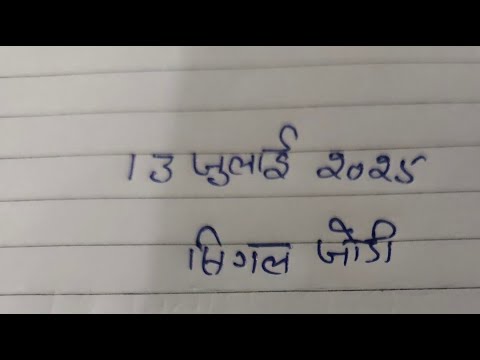 13 जुलाई २०२५
सिगल जोडी